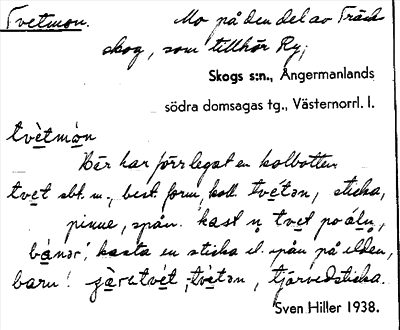 Tvetmon. Mo på den del av Träck
skog, som tillhör Ry;
Skogs s:n., Ångermanlands
södra domsagas tg., Västernorrl. l.
tvètmòn
Här har förr legat en kolbotten
tvet sbt. m., best. form, koll. tvétən, sticka,
pinne, spån. kast n tvet po álṇ,
bánər! kasta en sticka el. spån på elden,
barn! tjärvedsticka.
Sven Hiller 1938.